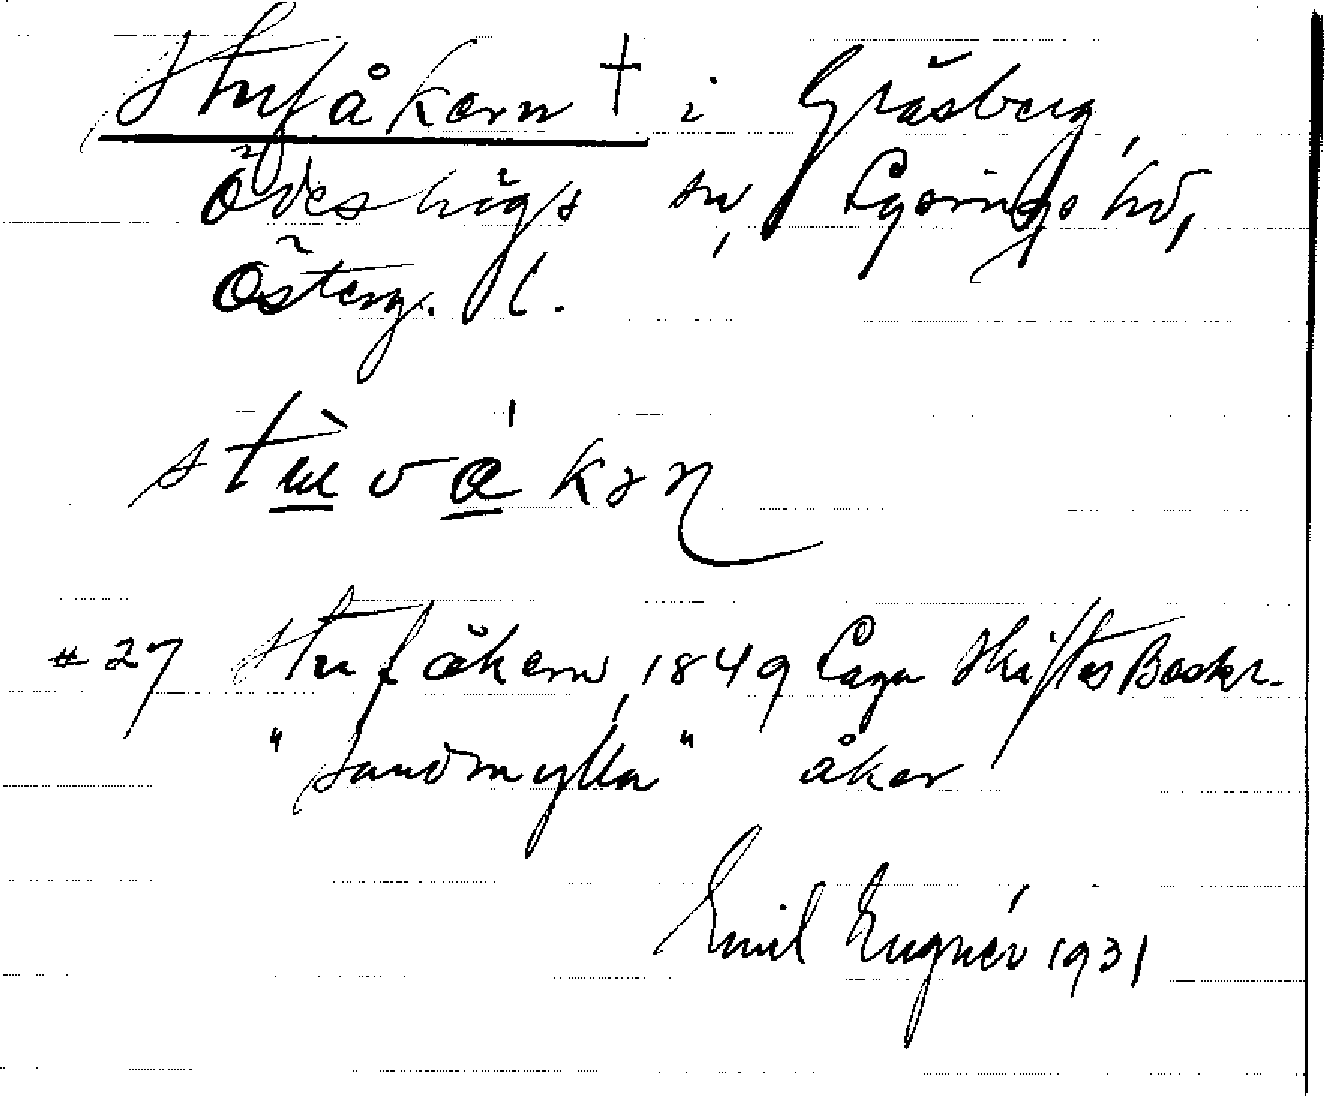 Stufåkern † i Gråsberg,
Ödeshögs sn, Lysings hd,
Österg. l.
stù̲vá̲kən
# 27 Stufåkern, 1849 Laga SkiftesBeskr.
"Sandmylla" åker
Emil Eugnér 1931